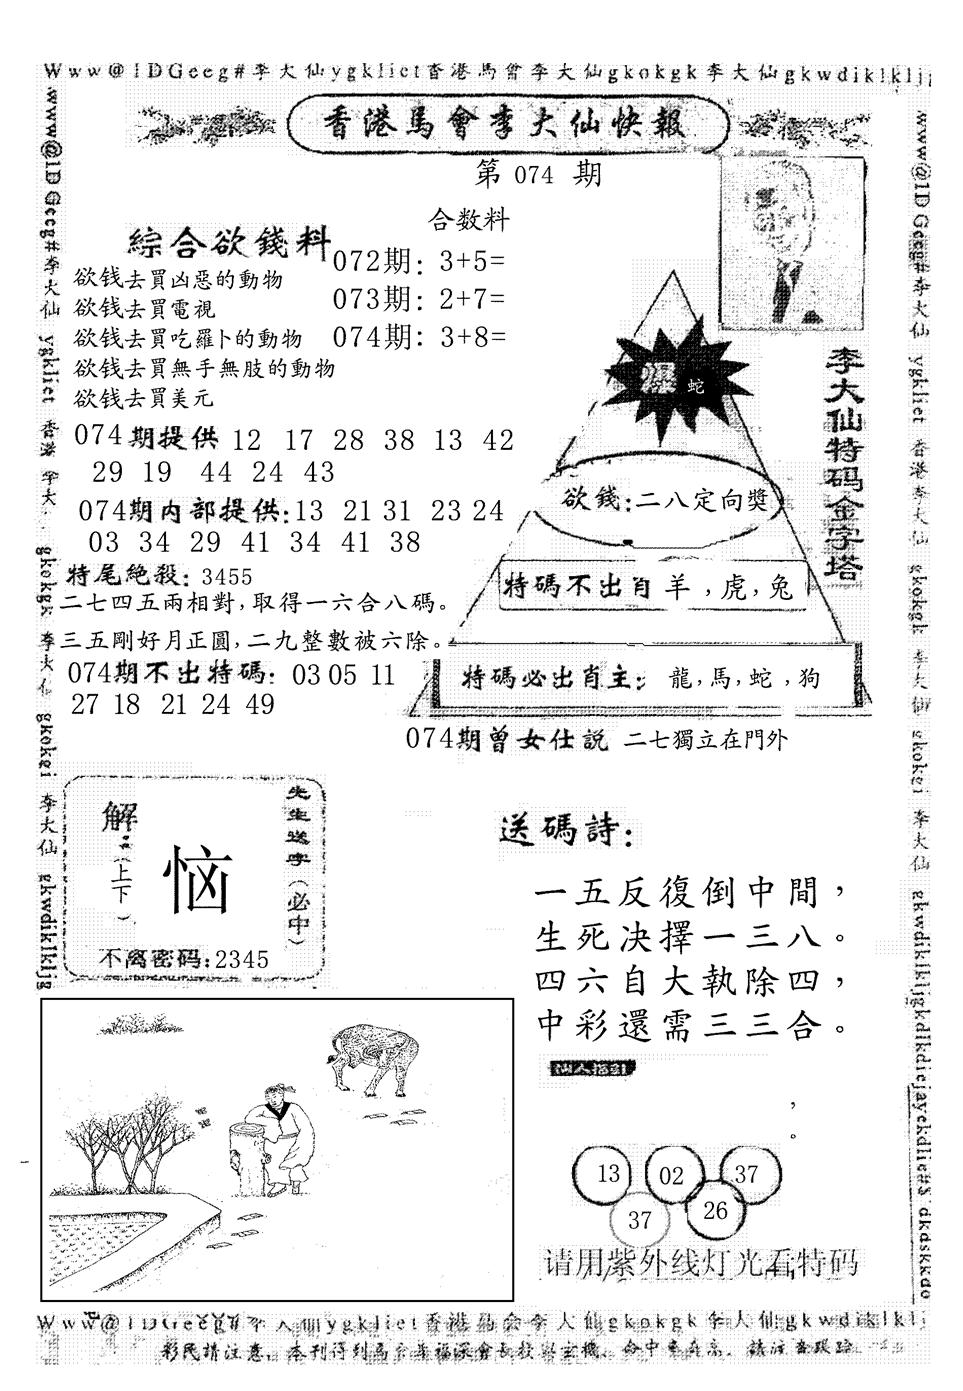 Www@1DGeeg#李大仙ygkliet香港馬會李大仙gkokgk李大仙gkwdiklklj
香港馬會李大仙快報
第 074 期
合数料
綜合欲錢料
072期: 3+5=
欲钱去買凶惡的動物
欲钱去買電視
073期: 2+7=
欲钱去買吃羅卜的動物
074期: 3+8=
欲钱去買無手無肢的動物
欲钱去買美元
074期提供 12 17 28 38 13 42
29 19 44 24 43
074期内部提供:13 21 31 23 24
03 34 29 41 34 41 38
特尾絶殺: 3455
二七四五兩相對,取得一六合八碼。
三五剛好月正圓,二九整數被六除。
074期不出特碼: 03 05 11
27 18 21 24 49
李大仙特码金字塔
蛇
欲錢:二八定向獎
特碼不出肖 羊,虎,兔
特碼必出肖主: 龍,馬,蛇,狗
074期曾女仕説 二七獨立在門外
解
(上下)
恼
先生送字(必中)
不离密码:2345
送碼詩:
一五反復倒中間,
生死决擇一三八。
四六自大執除四,
中彩還需三三合。
仙人指引
,
。
13 02 37
37 26
请用紫外线灯光看特码
www@1DGeeg#李大仙 ygkliet 香港 李大 gkokgk 李大仙 gkokei 李大仙 gkwdiklkljg
www@1DGeeg#李大仙 ygkliet 香港李大仙 gkokgk 李大仙 gkokei 李大仙 gkwdiklkljgkdlkdiejayekdlie#$dkdskkdo
Www@1DGeeg#李大仙ygkliet香港馬會李大仙gkokgk李大仙gkwdiklklj
彩民請注意,本刊得到馬會